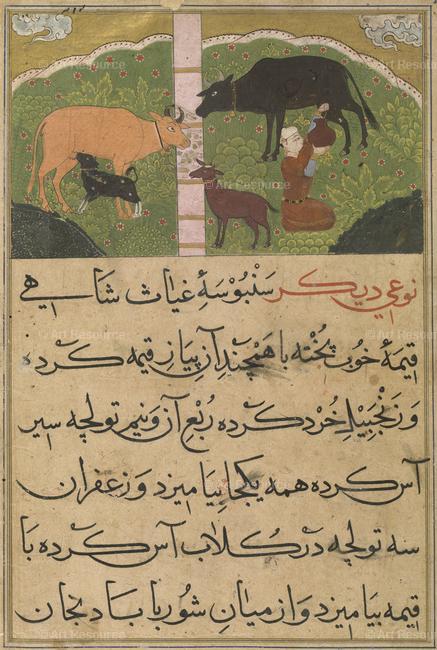 نوعی دیکر سنبوسهٔ غیاث شاهی
قیمهٔ خوب پخته با همچندِ آن پیاز قیمه کرده
و زنجبیل خرد کرده ربع آن و نیم تولچه سیر
آس کرده همه یکجا بیامیزد و زعفران
سه تولچه در کلاب آس کرده با
قیمه بیامیزد و از میانِ شوربا بادنجان